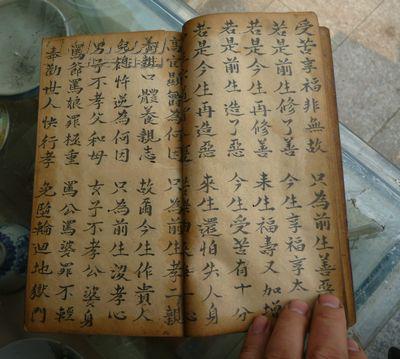 受苦享福非無故 只為前生善惡
若是前生修了善 今生享福享太
若是今生再修善 來生福壽又加增
若是前生造了惡 今生受苦有十分
若是今生再造惡 來生還怕失人身
高官顯爵為何因 只為前生孝親
養親口體養親志 故爾今生作貴人
兒媳忤逆為何因 只為前生沒孝心
男子不孝父和母 女子不孝公婆身
罵爺罵娘罪極重 罵公罵婆罪不輕
奉勸世人快行孝 免墮輪迴地獄門